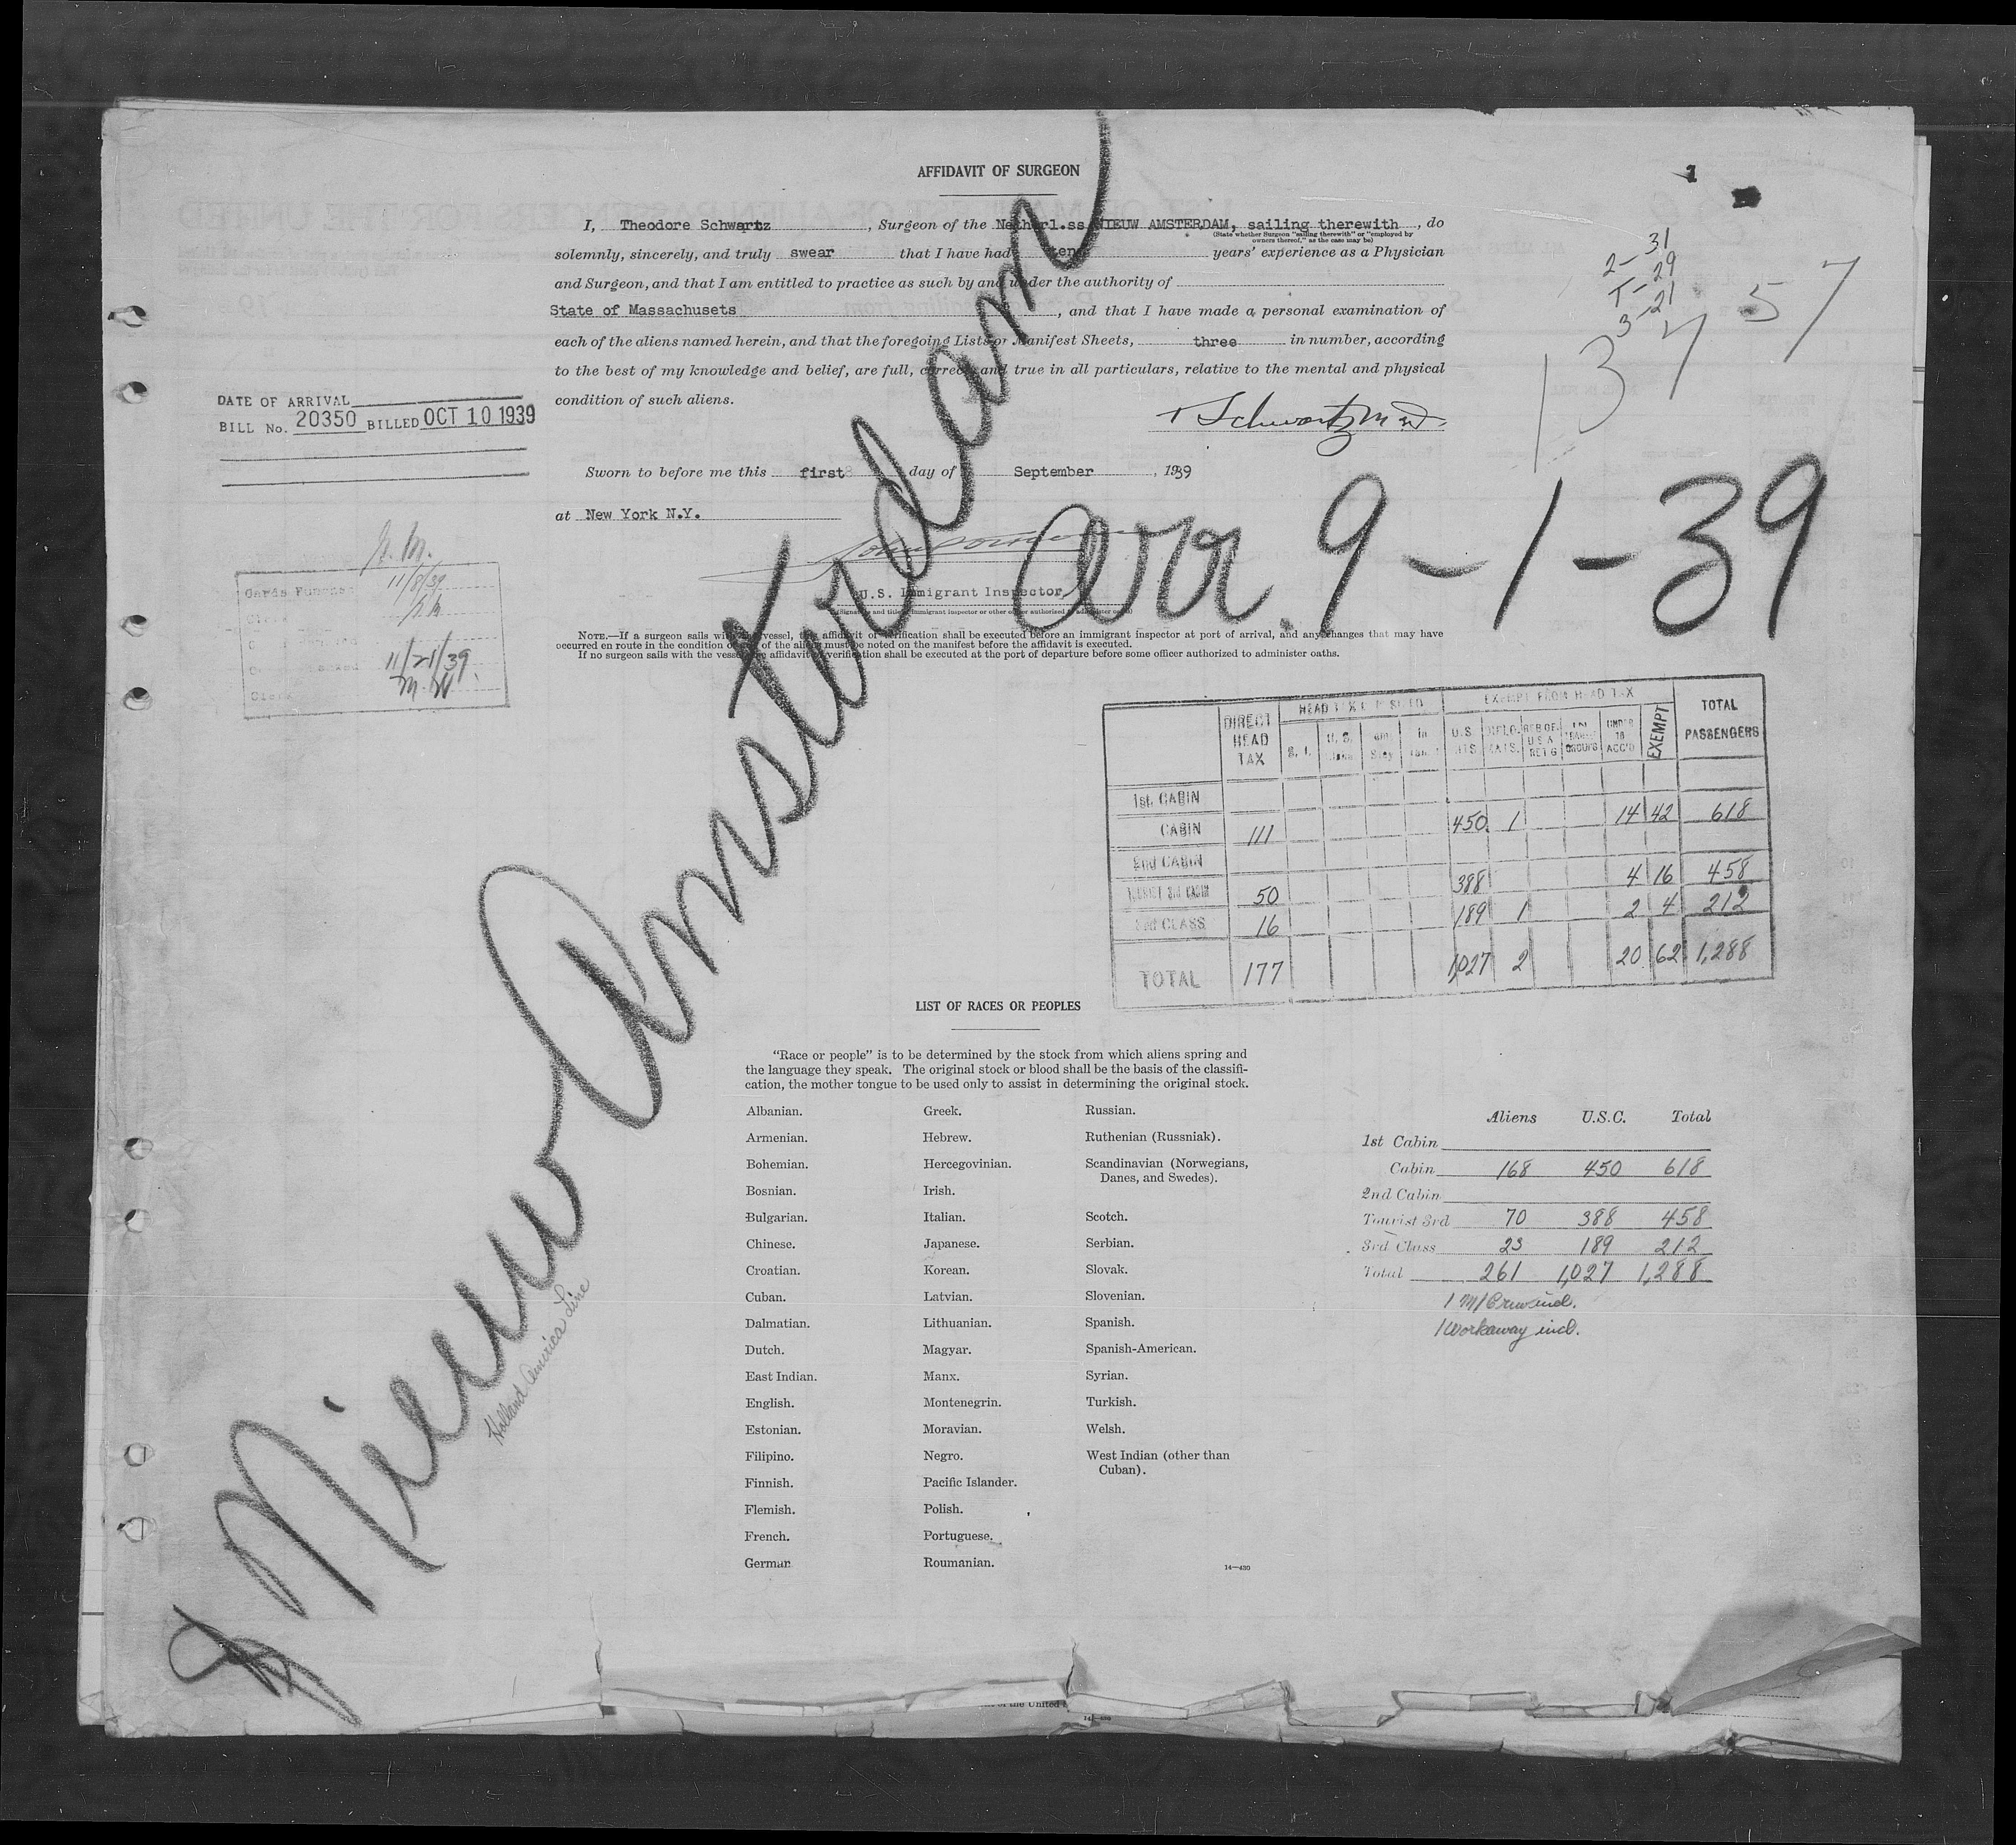 AFFIDAVIT OF SURGEON
1
I, Theodore Schwartz, Surgeon of the Netherl.ss NIEUW AMSTERDAM, sailing therewith, do
(State whether Surgeon "sailing therewith" or "employed by
owners thereof," as the case may be)
solemnly, sincerely, and truly swear that I have had ten years' experience as a Physician
and Surgeon, and that I am entitled to practice as such by and under the authority of
State of Massachusets, and that I have made a personal examination of
each of the aliens named herein, and that the foregoing Lists or Manifest Sheets, three in number, according
to the best of my knowledge and belief, are full, correct, and true in all particulars, relative to the mental and physical
condition of such aliens.
2-31
T-29
3-21
13757
T Schwartz M D.
DATE OF ARRIVAL
BILL No. 20350 BILLED OCT 10 1939
Sworn to before me this first day of September, 1939
at New York N.Y.
U.S. Immigrant Inspector,
Arr. 9-1-39
Nieuw Amsterdam
Holland America Line
11/8/39
11/21/39
M.W
NOTE.—If a surgeon sails with the vessel, the affidavit of verification shall be executed before an immigrant inspector at port of arrival, and any changes that may have
occurred en route in the condition of any of the aliens must be noted on the manifest before the affidavit is executed.
If no surgeon sails with the vessel the affidavit of verification shall be executed at the port of departure before some officer authorized to administer oaths.
DIRECT HEAD TAX EXEMPT FROM HEAD TAX TOTAL PASSENGERS
U.S. DIPLO. UNDER 16 ACC'D EXEMPT
1st. CABIN
CABIN 111 450 1 14 42 618
2nd CABIN
TOURIST 3rd CABIN 50 388 4 16 458
3rd CLASS 16 189 1 2 4 212
TOTAL 177 1,027 2 20 62 1,288
LIST OF RACES OR PEOPLES
"Race or people" is to be determined by the stock from which aliens spring and
the language they speak. The original stock or blood shall be the basis of the classifi-
cation, the mother tongue to be used only to assist in determining the original stock.
Albanian. Greek. Russian.
Armenian. Hebrew. Ruthenian (Russniak).
Bohemian. Hercegovinian. Scandinavian (Norwegians,
Danes, and Swedes).
Bosnian. Irish.
Bulgarian. Italian. Scotch.
Chinese. Japanese. Serbian.
Croatian. Korean. Slovak.
Cuban. Latvian. Slovenian.
Dalmatian. Lithuanian. Spanish.
Dutch. Magyar. Spanish-American.
East Indian. Manx. Syrian.
English. Montenegrin. Turkish.
Estonian. Moravian. Welsh.
Filipino. Negro. West Indian (other than
Cuban).
Finnish. Pacific Islander.
Flemish. Polish.
French. Portuguese.
German Roumanian.
14—430
Aliens U.S.C. Total
1st Cabin
Cabin 168 450 618
2nd Cabin
Tourist 3rd 70 388 458
3rd Class 23 189 212
Total 261 1,027 1,288
1 M/Crew incl.
1 Workaway incl.
of the United
14—430